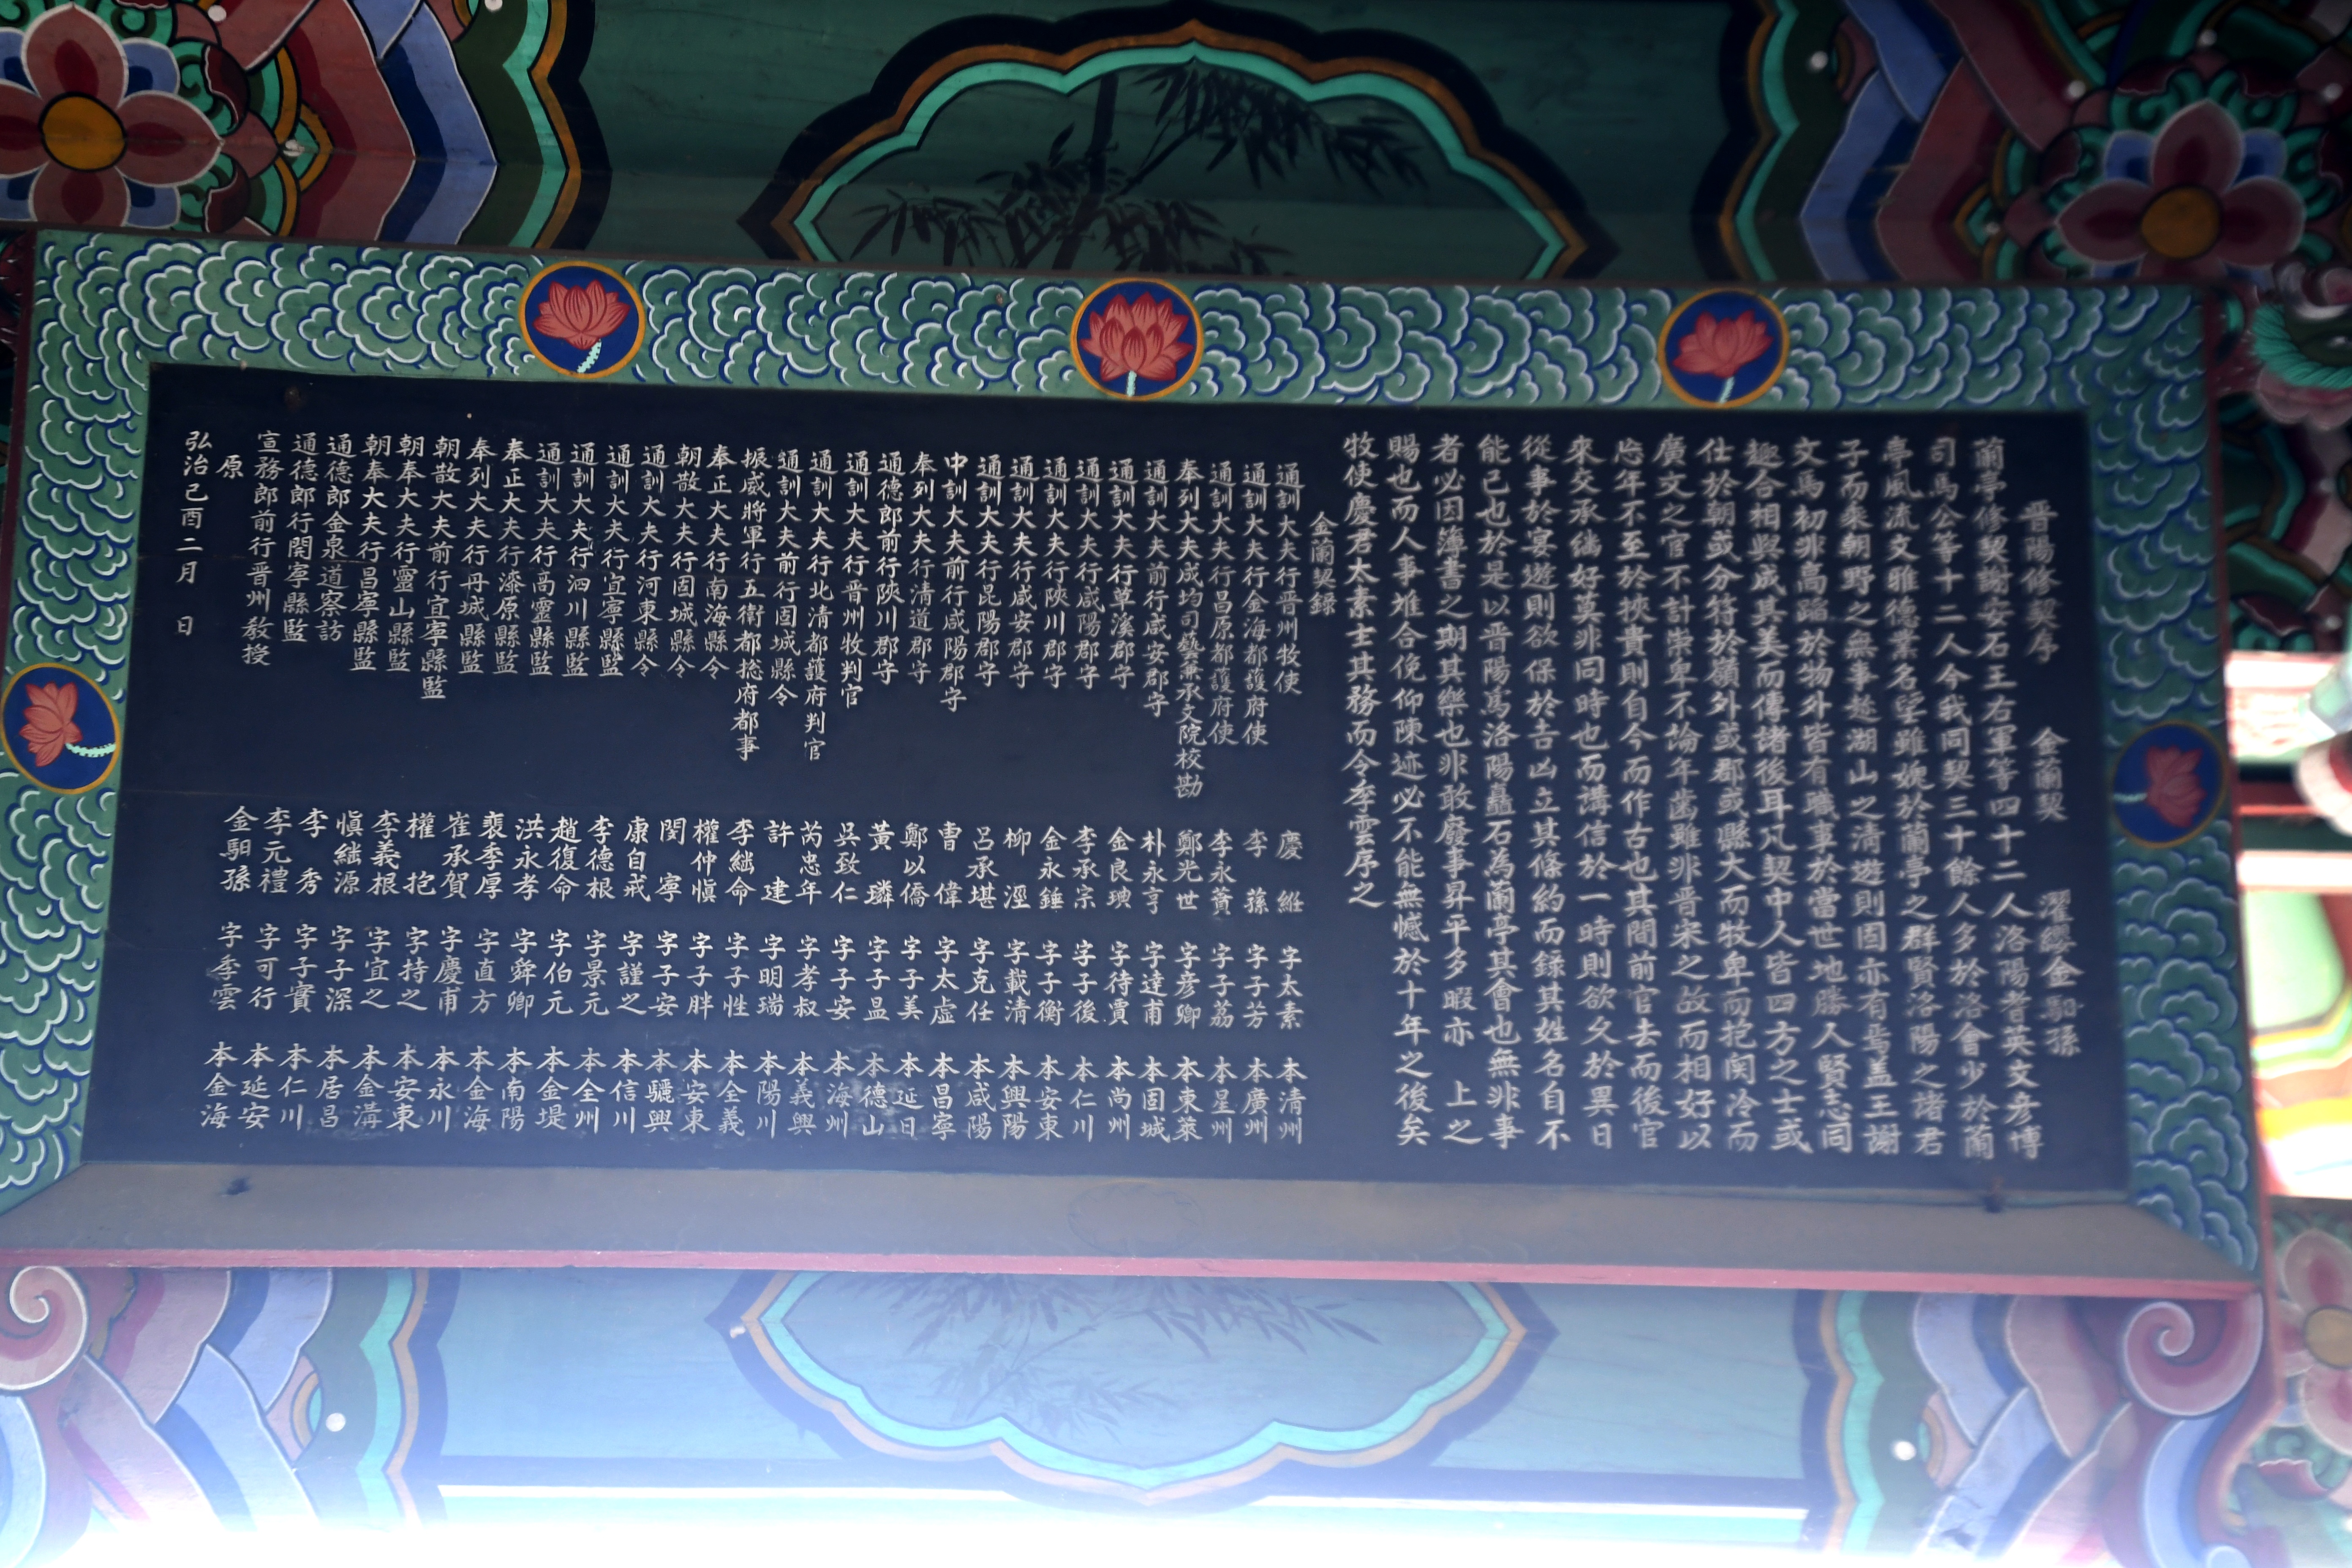 晋陽修契序 金蘭契 濯纓金馹孫
蘭亭修契謝安石王右軍等四十二人洛陽耆英文彦博
司馬公等十二人今我同契三十餘人多於洛會少於蘭
亭風流文雅德業名望雖媿於蘭亭之群賢洛陽之諸君
子而乘朝野之無事趁湖山之淸遊則固亦有焉盖王謝
文馬初非高蹈於物外皆有職事於當世地勝人賢志同
趣合相與成其美而傳諸後耳凡契中人皆四方之士或
仕於朝或分符於嶺外或郡或縣大而牧卑而抱関冷而
廣文之官不計崇卑不論年齒雖非晋宋之故而相好以
忘年不至於挾貴則自今而作古也其間前官去而後官
來交承繾好莫非同時也而講信於一時則欲久於異日
從事於宴遊則欲保於吉凶立其條約而錄其姓名自不
能已也於是以晋陽為洛陽矗石為蘭亭其會也無非事
者必因簿書之期其樂也非敢廢事昇平多暇亦 上之
賜也而人事难合俛仰陳迹必不能無憾於十年之後矣
牧使慶君太素主其務而令季雲序之
金蘭契錄
通訓大夫行晋州牧使 慶絍 字太素 本淸州
通訓大夫行金海都護府使 李蓀 字子芳 本廣州
通訓大夫行昌原都護府使 李永蕡 字子茘 本星州
奉列大夫成均司藝兼承文院校勘 鄭光世 字彦卿 本東萊
通訓大夫前行咸安郡守 朴永亨 字達甫 本固城
通訓大夫行草溪郡守 金良琠 字待賈 本尚州
通訓大夫行咸陽郡守 李承宗 字子後 本仁川
通訓大夫行陜川郡守 金永錘 字子衡 本安東
通訓大夫行咸安郡守 柳涇 字載清 本興陽
通訓大夫行昆陽郡守 呂承堪 字克任 本咸陽
中訓大夫前行咸陽郡守 曺偉 字太虛 本昌寧
奉列大夫行清道郡守 鄭以僑 字子美 本延日
通德郎前行陜川郡守 黃璘 字子昷 本德山
通訓大夫行晋州牧判官 吳致仁 字子安 本海州
通訓大夫行北清都護府判官 芮忠年 字孝叔 本義興
通訓大夫前行固城縣令 許建 字明瑞 本陽川
振威將軍行五衛都捴府都事 李継命 字子性 本全義
奉正大夫行南海縣令 權仲愼 字子胖 本安東
朝散大夫行固城縣令 閔寧 字子安 本驪興
通訓大夫行河東縣令 康自戒 字謹之 本信川
通訓大夫行宜寧縣監 李德根 字景元 本全州
通訓大夫行泗川縣監 趙復命 字伯元 本金堤
通訓大夫行高靈縣監 洪永孝 字舜卿 本南陽
奉正大夫行漆原縣監 裵季厚 字直方 本金海
奉列大夫行丹城縣監 崔承賀 字慶甫 本永川
朝散大夫前行宜寧縣監 權抱 字持之 本安東
朝奉大夫行靈山縣監 李義根 字宜之 本金溝
朝奉大夫行昌寧縣監 愼継源 字子深 本居昌
通德郎金泉道察訪 李秀 字子實 本仁川
通德郎行開寧縣監 李元禮 字可行 本延安
宣務郎前行晋州敎授 金馹孫 字季雲 本金海
原
弘治己酉二月 日